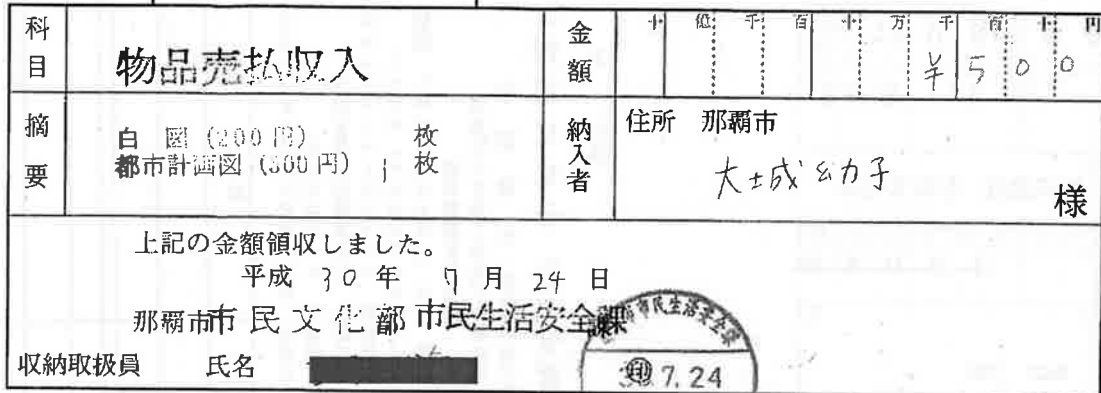 科目
物品売払収入
金額
十億千百十万千百十円
¥500
摘要
白 図 (200円) 枚
都市計画図 (500円) 1 枚
納入者
住所 那覇市
大城 幼子
様
上記の金額領収しました。
平成 30 年 7 月 24 日
那覇市 市民文化部 市民生活安全課
収納取扱員 氏名
市民生活安全課
印
30.7.24